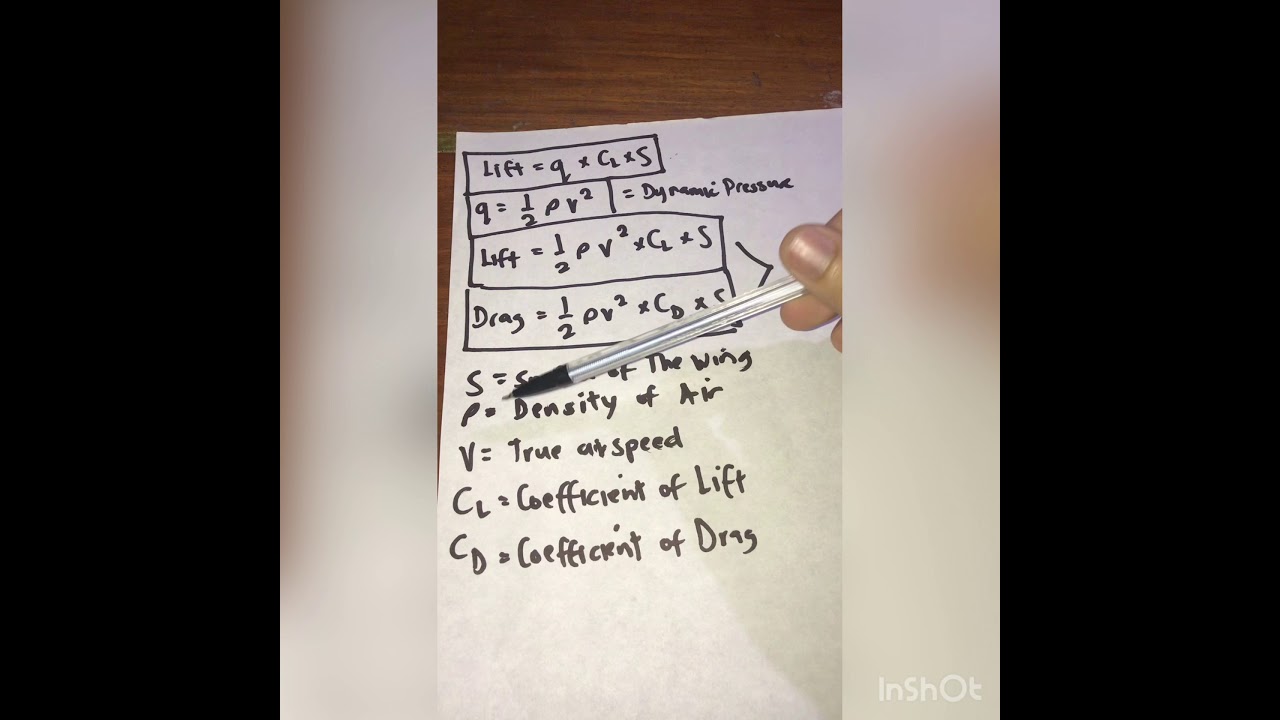 Lift = q × CL × S
q = 1/2 ρ V² = Dynamic Pressure
Lift = 1/2 ρ V² × CL × S
Drag = 1/2 ρ V² × CD × S
S = of The wing
ρ = Density of Air
V = True airspeed
CL = Coefficient of Lift
CD = Coefficient of Drag
InShOt